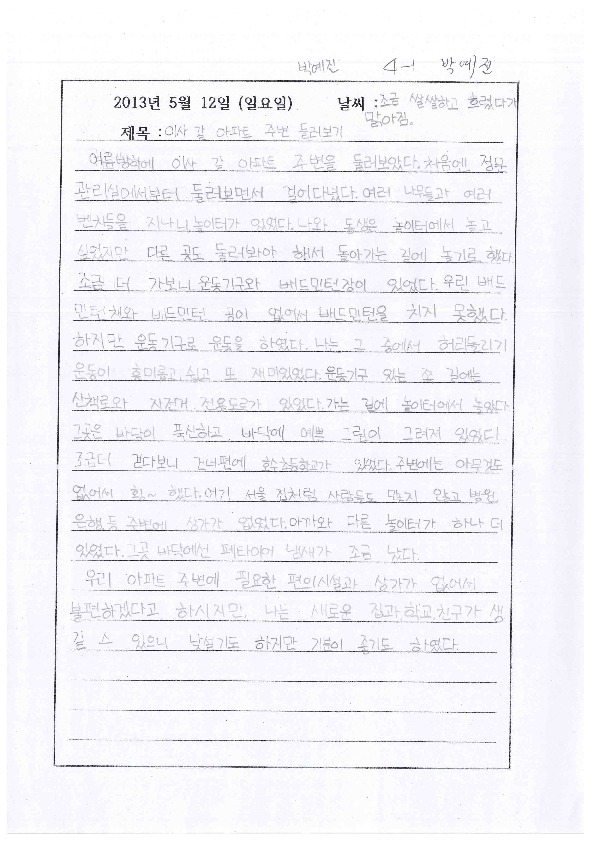 박예진 4-1 박예진
2013년 5월 12일 (일요일) 날씨 : 조금 쌀쌀하고 흐렸다가
맑아짐.
제목 : 이사 갈 아파트 주변 둘러보기
이사 갈 아파트 주변을 둘러보았다. 처음에 정문
관리실에서부터 둘러보면서 걸어다녔다. 여러 나무들과 여러
벤치들을 지나니 놀이터가 있었다. 나와 동생은 놀이터에서 놀고
싶었지만 다른 곳도 둘러봐야 해서 돌아가는 길에 놀기로 했다
조금 더 가보니 운동기구와 배드민턴장이 있었다. 우린 배드
민턴 채와 배드민턴 공이 없어서 배드민턴을 치지 못했다.
하지만 운동기구로 운동을 하였다. 나는 그 중에서 허리돌리기
운동이 흥미롭고, 쉽고 또 재미있었다. 운동기구 있는 쪽 길에는
산책로와 자전거 전용도로가 있었다. 가는 길에 놀이터에서 놀았다
그곳은 바닥이 푹신하고, 바닥에 예쁜 그림이 그려져 있었다!
조금더 걷다보니 건너편에 화수초등학교가 있었다. 주변에는 아무것도
없어서 휑~ 했다. 여기 서울 집처럼 사람들도 많지 않고 병원
은행 등 주변에 상가가 없었다. 아까와 다른 놀이터가 하나 더
있었다. 그곳 바닥에선 폐타이어 냄새가 조금 났다.
우리 아파트 주변에 필요한 편의시설과 상가가 없어서
불편하겠다고 하시지만, 나는 새로운 집과, 학교, 친구가 생
길 수 있으니 낯설기도 하지만 기분이 좋기도 하였다.